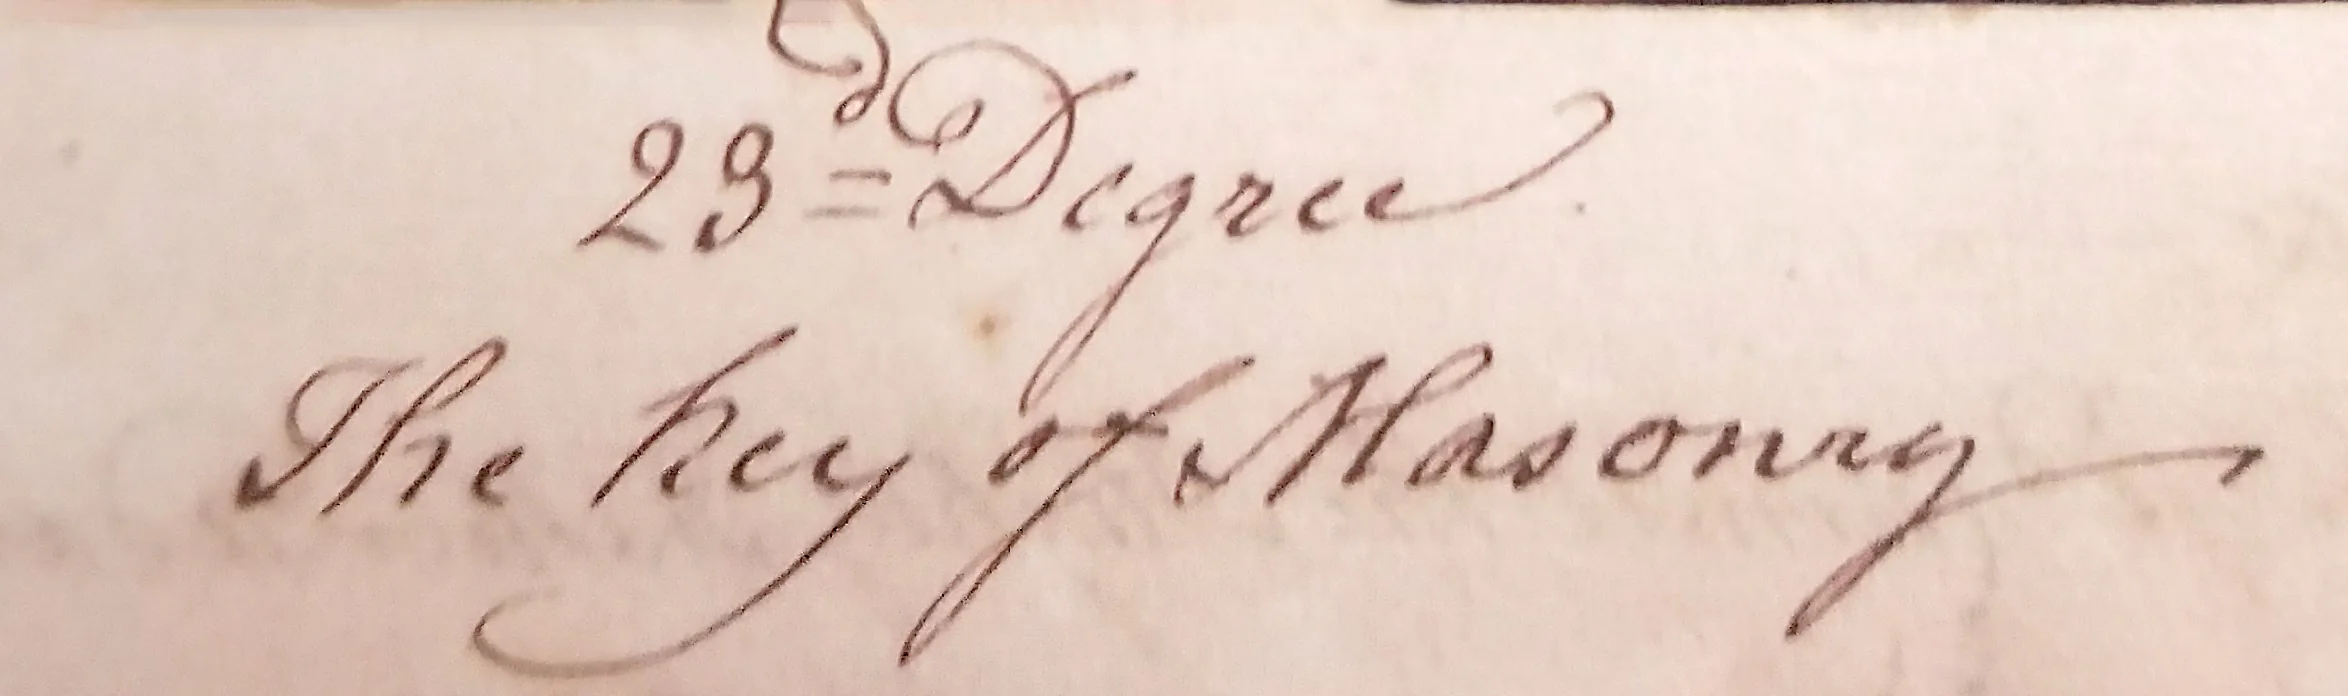 23d= Degree.
The Key of Masonry